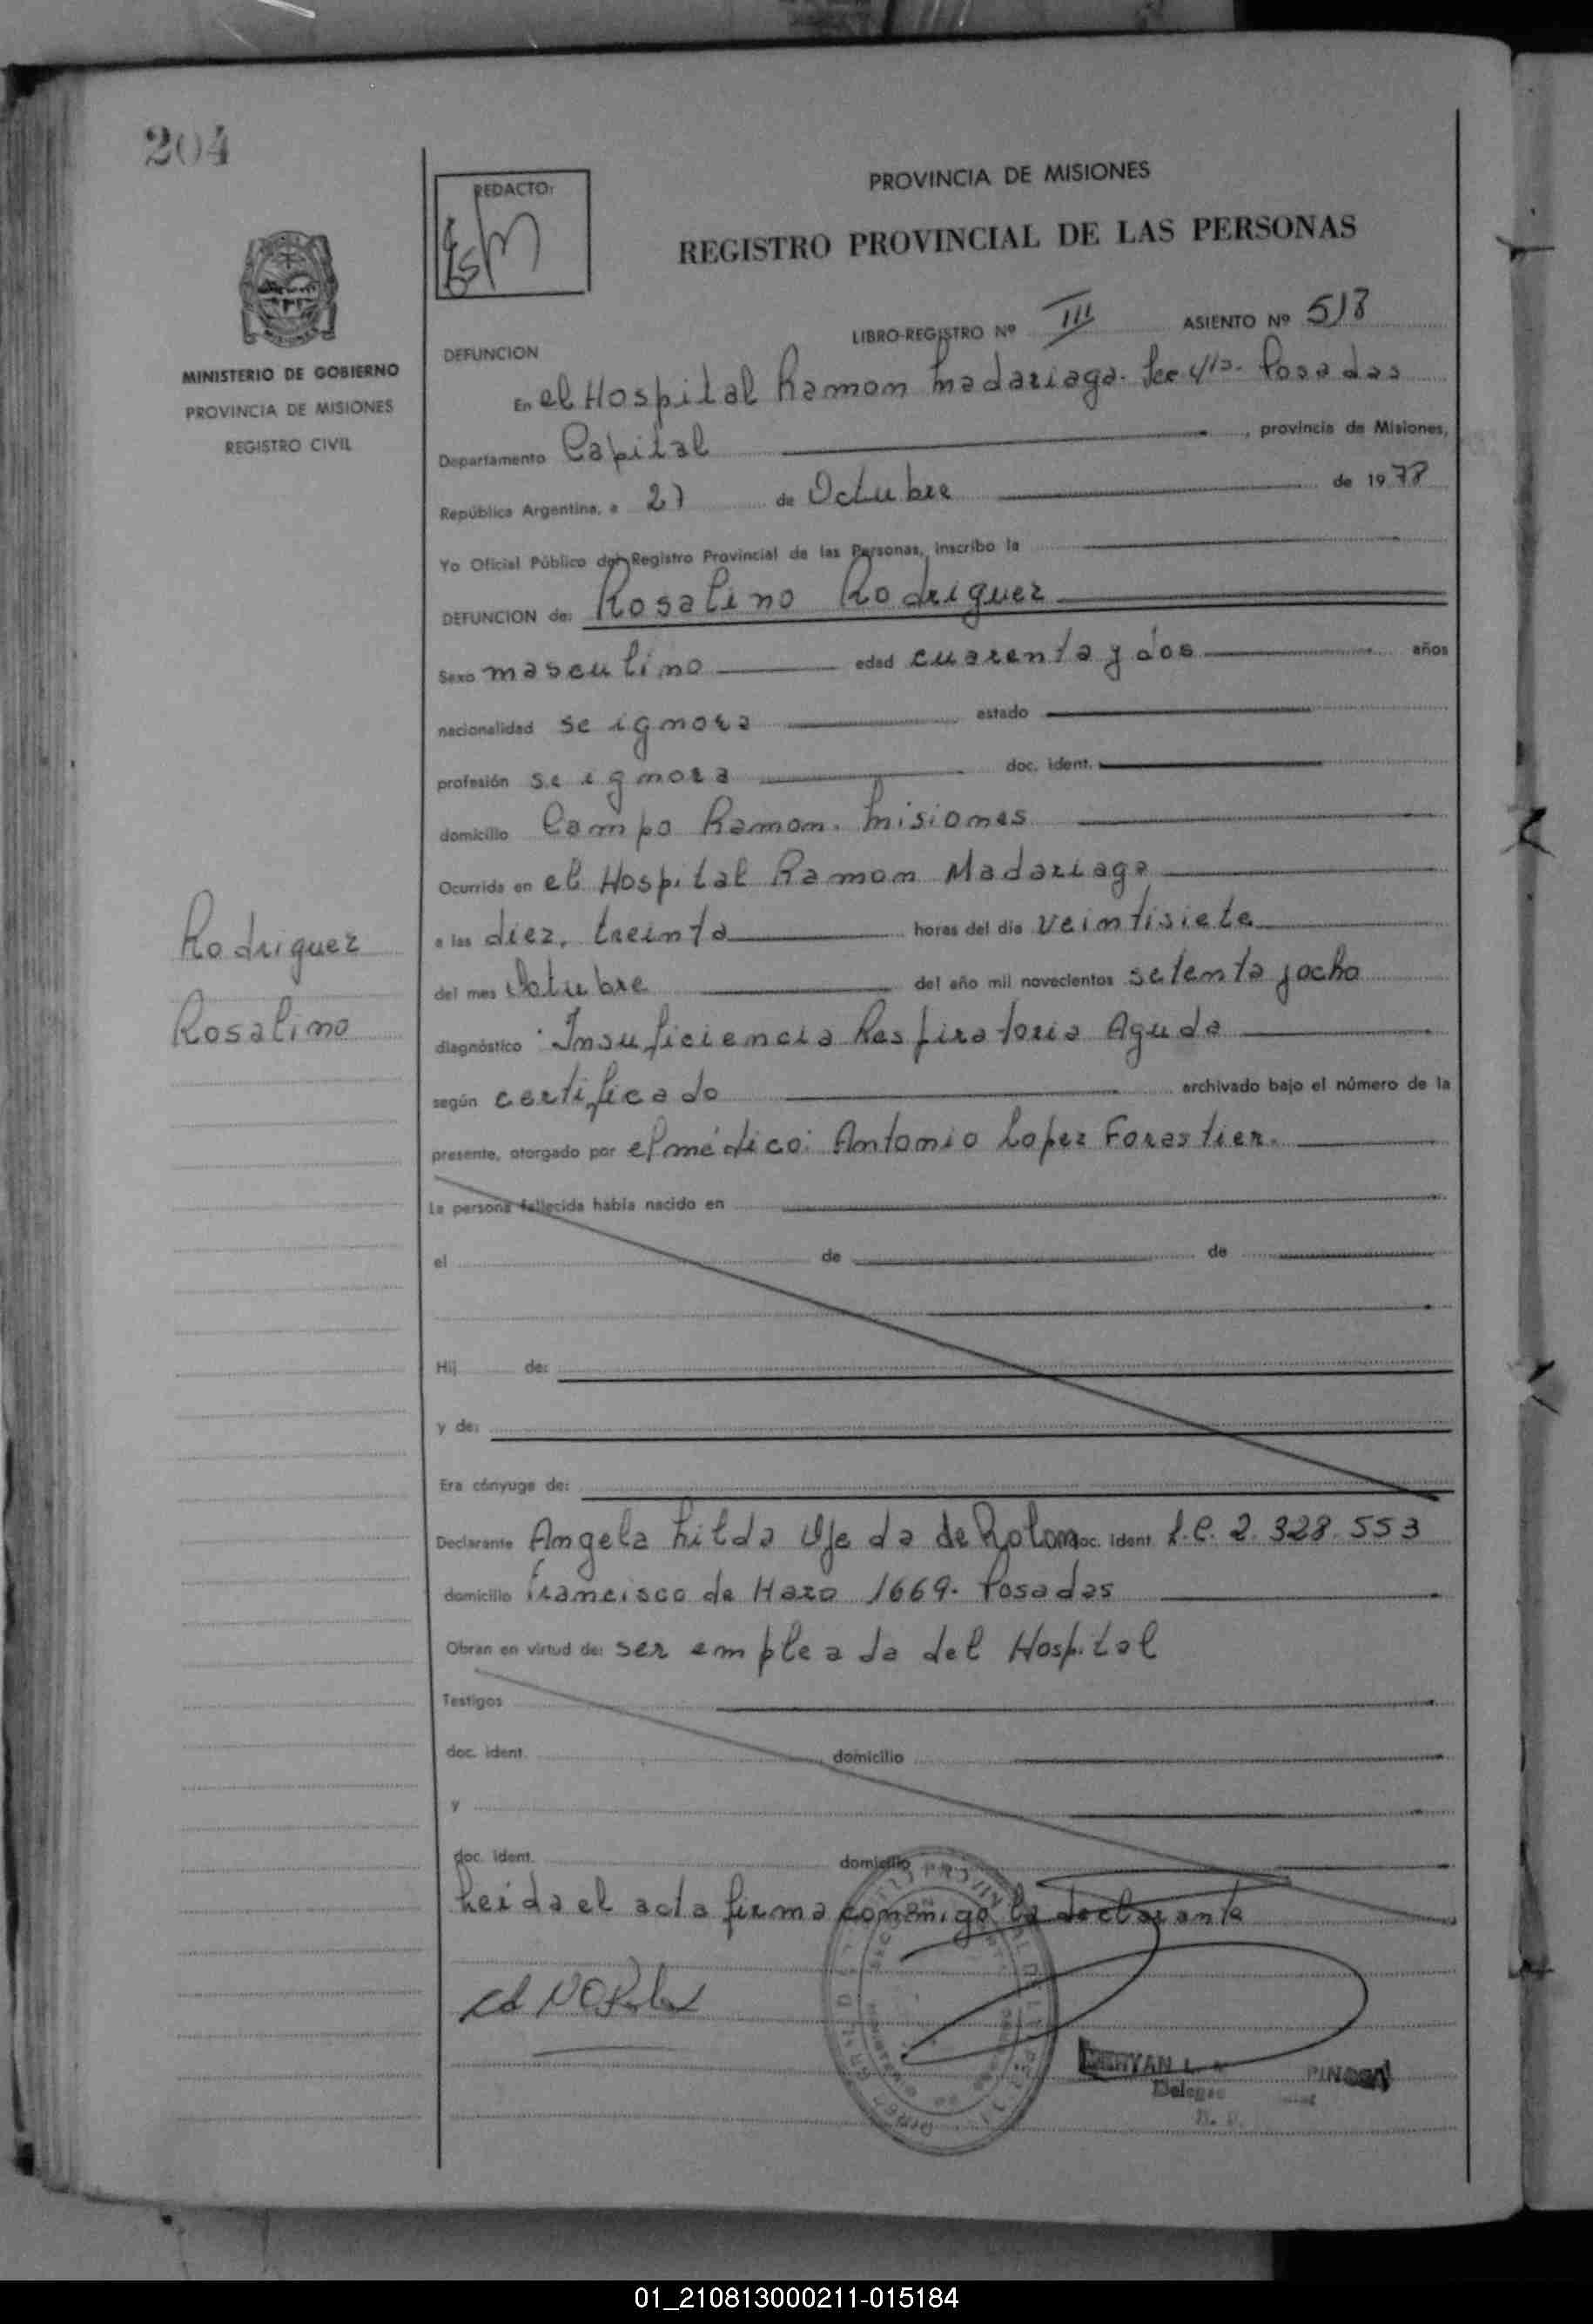 204
REDACTO:
PROVINCIA DE MISIONES
REGISTRO PROVINCIAL DE LAS PERSONAS
MINISTERIO DE GOBIERNO
PROVINCIA DE MISIONES
REGISTRO CIVIL
LIBRO-REGISTRO Nº III ASIENTO Nº 518
DEFUNCION
En el Hospital Ramon Madariaga. Posadas
Departamento Capital, provincia de Misiones,
República Argentina, a 27 de Octubre de 1978
Yo Oficial Público del Registro Provincial de las Personas, inscribo la
DEFUNCION de: Rosalino Rodriguez
Sexo masculino edad cuarenta y dos años
nacionalidad se ignora estado
profesión se ignora doc. ident.
domicilio Campo Ramon. Misiones
Ocurrida en el Hospital Ramon Madariaga
a las diez, treinta horas del día veintisiete
del mes Octubre del año mil novecientos setenta y ocho
diagnóstico Insuficiencia Respiratoria Aguda
según certificado archivado bajo el número de la
presente, otorgado por el médico: Antonio Lopez Forastier.
Rodriguez
Rosalino
La persona fallecida había nacido en
el de de
Hij de:
y de:
Era cónyuge de:
Declarante Angela hilda Ojeda de Rolon doc. ident. L.C. 2.328.553
domicilio Francisco de Haro 1669. Posadas
Obran en virtud de: ser empleada del Hospital
Testigos
doc. ident. domicilio
y
doc. ident. domicilio
Leida el acta firma conmigo la declarante
01_210813000211-015184